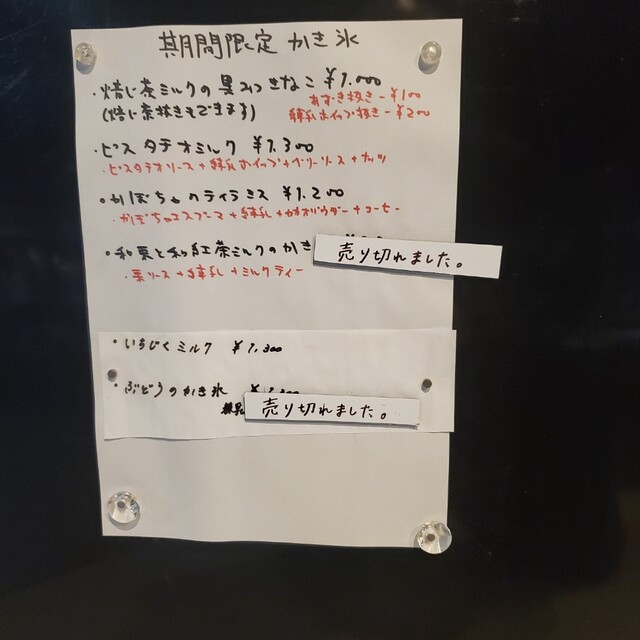 期間限定 かき氷
・焙じ茶ミルクの黒みつきなこ ¥1.000
(焙じ茶抜きもできます)
あずき抜き-¥100
練乳ホイップ抜き-¥200
・ピスタチオミルク ¥1.300
・ピスタチオソース+練乳ホイップ+ベリーソース+ナッツ
・かぼちゃのティラミス ¥1.200
・かぼちゃエスプーマ+練乳+カカオパウダー+コーヒー
・和栗と和紅茶ミルクのかき
売り切れました。
・栗ソース+練乳+ミルクティー
・いちじくミルク ¥1.300
・ぶどうのかき氷
練乳
売り切れました。